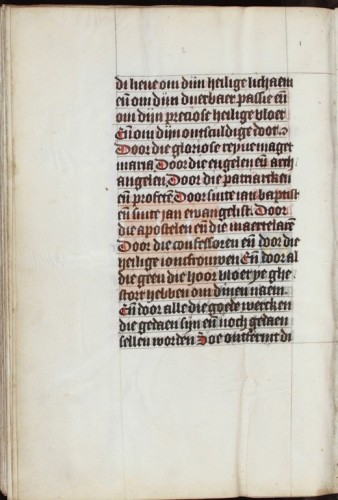 di lieue om dijn heilige lichaem
eñ om dijn duerbaer passie eñ
om dijn preciose heilige bloet
Eñ om dijn ontsculdige doot
Door die gloriose reyne maget
maria Door die engelen eñ arch
angelen Door die patriarcken
eñ profetē Door sinte jan baptist
eñ sinte jan ewangelist Door
die apostelen eñ die maertelarē
Door die confessoren eñ door die
heilige ionfrouwen Eñ door al
die geen die hoor bloet ye ghe
stort hebben om dinen naem
Eñ door alle die goede wercken
die gedaen sijn eñ noch gedaen
sellen worden Soe ontfermt di